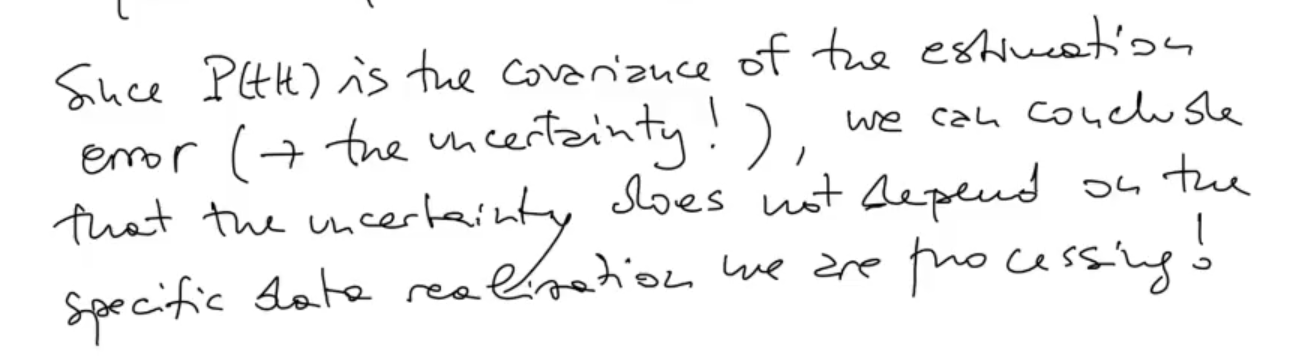 Since P(t|t) is the covariance of the estimation
error (→ the uncertainty!), we can conclude
that the uncertainty does not depend on the
specific data realization we are processing!